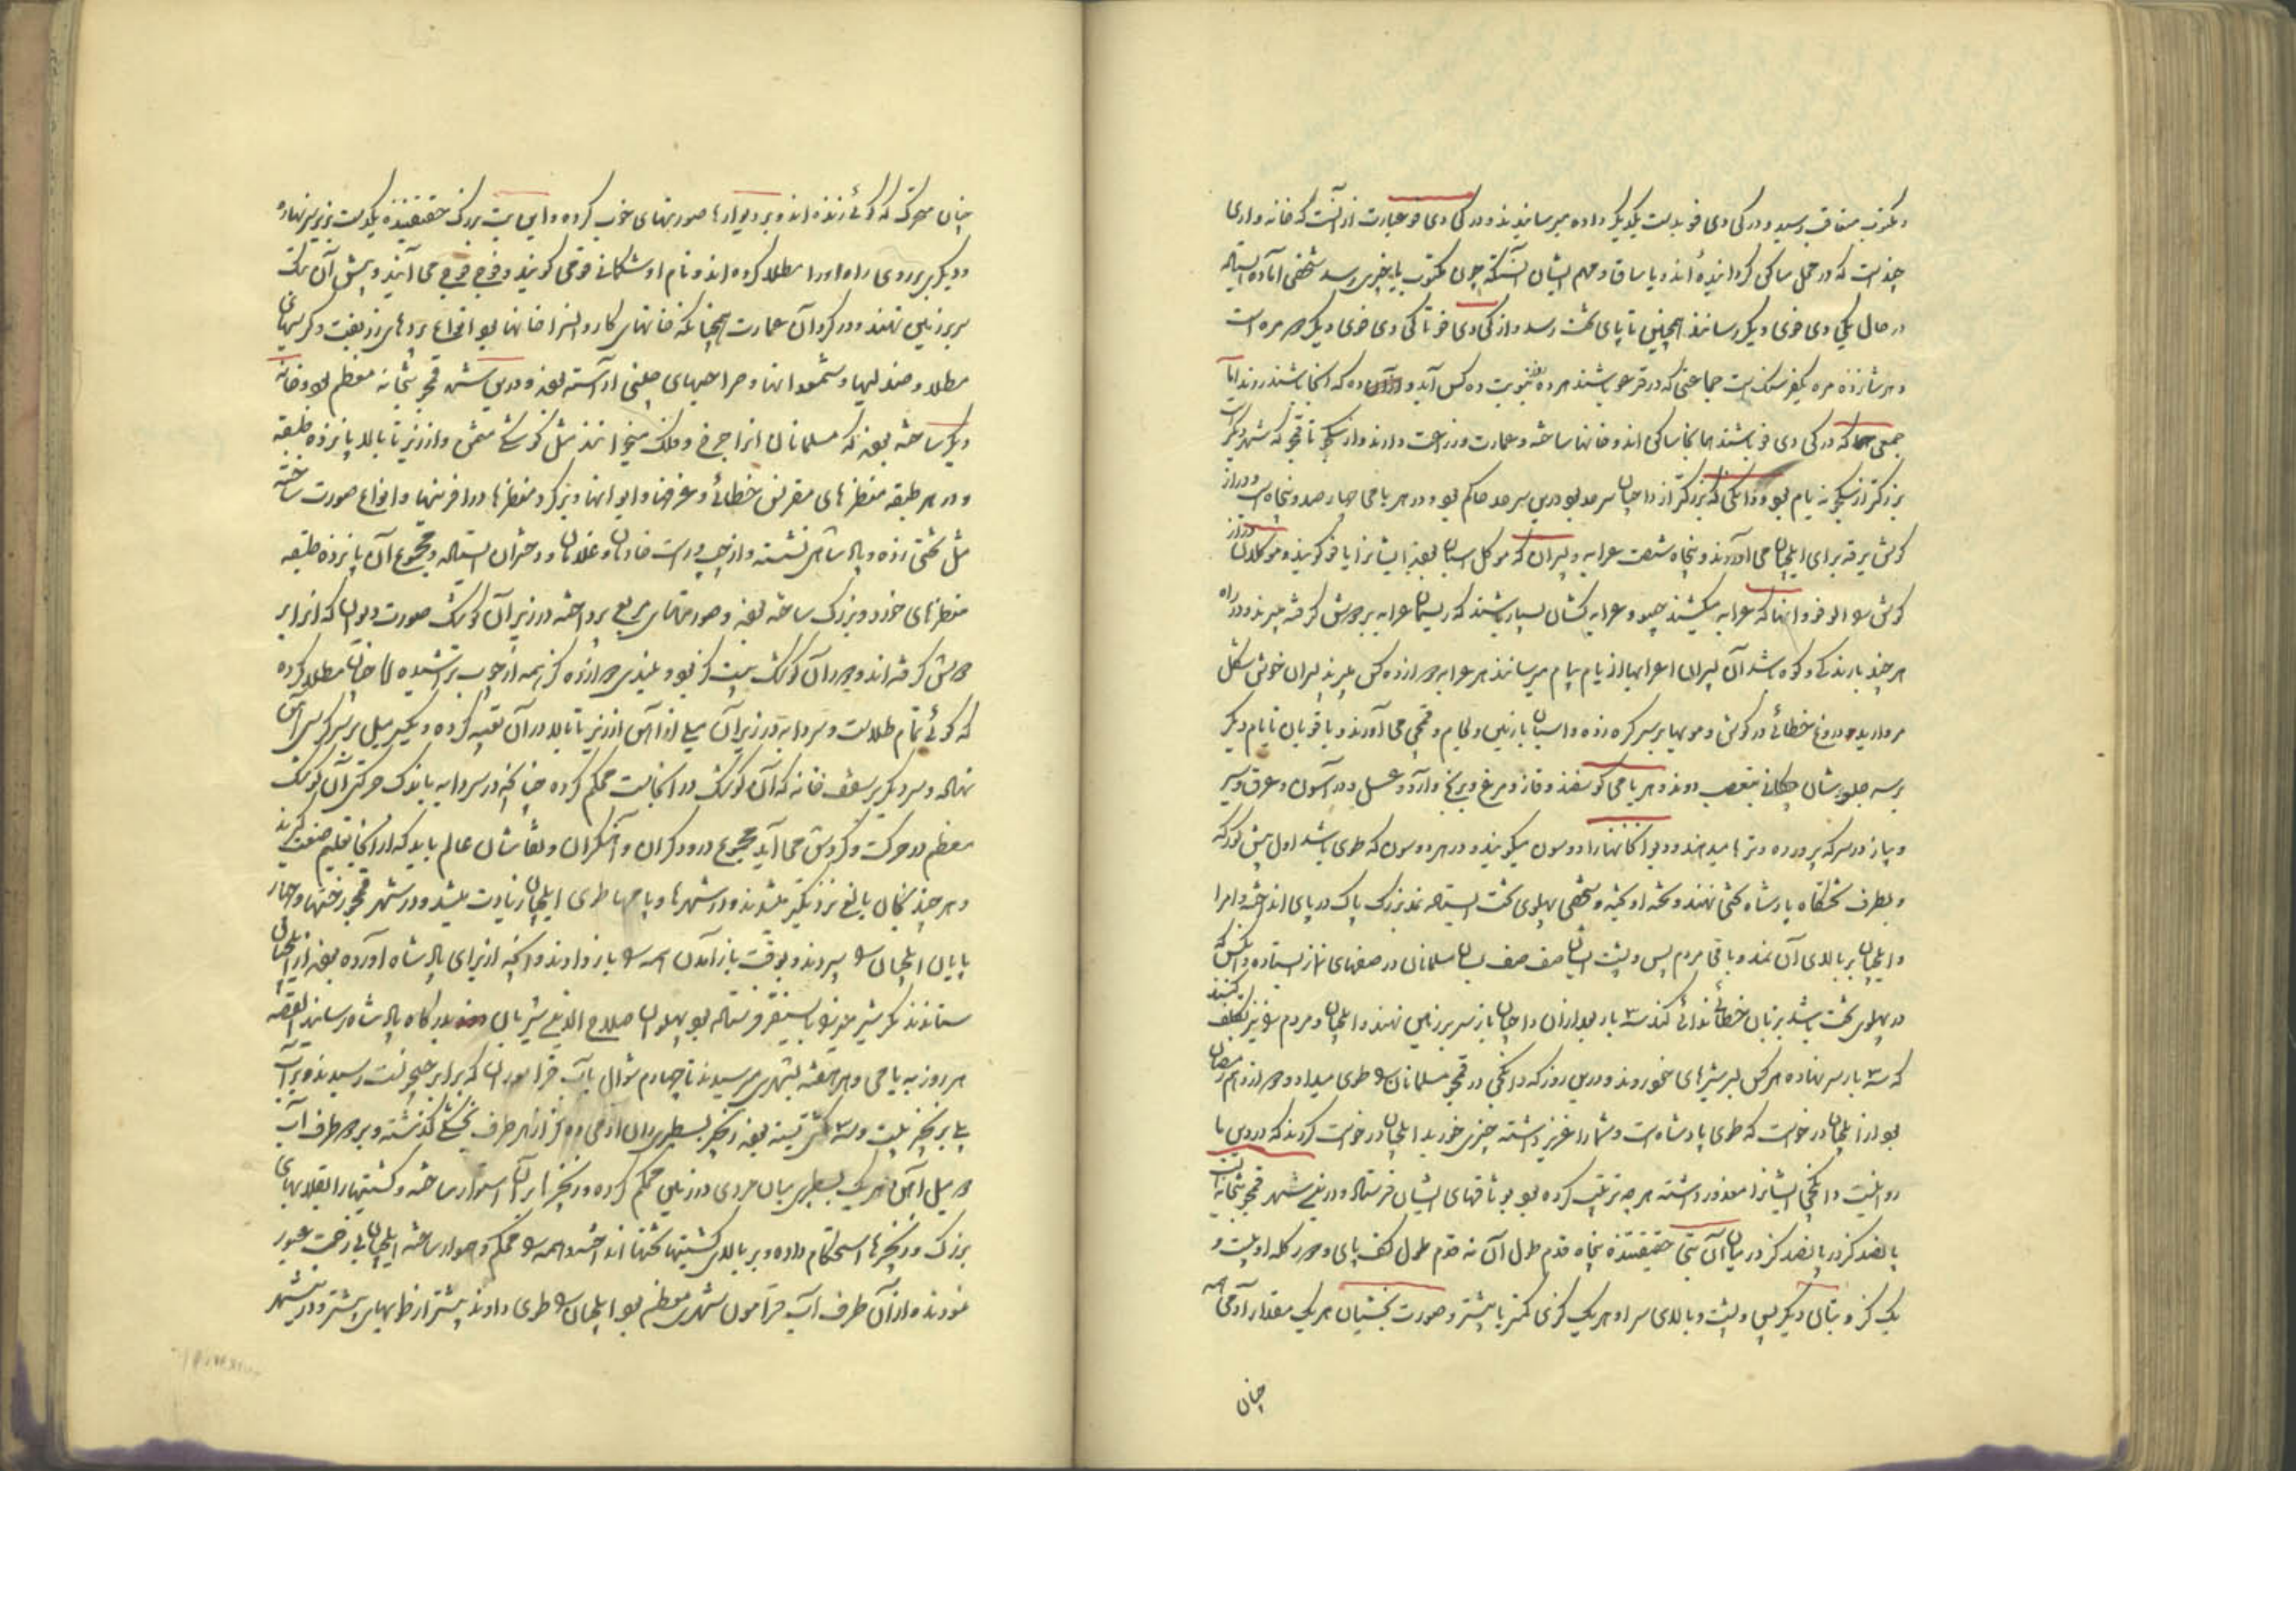 و مکتوب متعاقب رسید و در کی دی فو بدست یکدیگر داده میرسانیدند و در کی دی فو عبارت از آنست که خانه واری
چندست که در محل ساکن گردانیده اند و یاساق و مهم ایشان آنستکه چون مکتوب یا خبری رسد شخصی آماده ایستاده
در حال بکی دی فوی دیگر رسانند همچنین تا پای تخت رسد و از کی دی فو تا کی دی فوی دیگر ده مره است
و هر شانزده مره یکفرسنگ است جماعتی که در قرغو باشند هر ده روز بنوبت ده کس آید و آن ده که آنجا باشند روند اما
جمعی که در کی دی فو باشند همانجا ساکن اند و خانها ساخته و عمارت و زراعت دارند و از سکجو تا قمجو که شهر دیگر است
بزرگتر از سکجو نه یام بود و دانکجی که بزرگتر از داجیان سرحد بود درین سرحد حاکم بود و در هر یامی چهارصد و پنجاه اسپ و دراز
گوش یرقه برای ایلچیان می آوردند و پنجاه شصت عرابه و پسران که موکل اسپان بودند ایشانرا یافو گویند و موکلان دراز
گوش را لوفو و آنها که عرابه میکشند چیفو و عرابه کشان بسیار باشند که ریسمان عرابه بر دوش گرفته میبرند و در راه
هر چند باران و کوه باشد آن پسران عرابها از یام بیام میرسانند هر عرابه دوازده کس میبرند پسران خوش شکل
مروارید دروغ خطائی در گوش و مویها بر سر گره زده و اسپان با زین و لجام و قمچی می آورند و یافویان تا یام دیگر
برسه جلو ایشان دوند و هر یامی گوسفند و قاز و مرغ و برنج و آرد و عسل و دراسون و عرق و سیر
و پیاز در سرکه پرورده و ترها میدهند و دیوانخانها را دوسون میگویند و در هر دوسون که طوی باشد اول پیش کورکه
و بطرف تختگاه پادشاه تختی نهند و تخته آویخته و شخصی پهلوی تخت ایستاده نمد بزرگ پاک در پای انداخته و امرا
و ایلچیان بر بالای آن نمد و باقی مردم پس و پشت ایشان صف صف بسان مسلمانان در صفهای نماز ایستاده و آنکس که
در پهلوی تخت باشد بزبان خطائی ندائی کند سه بار بعد از آن داجیان باز سر بر زمین نهند و ایلچیان و مردم را نیز تکلف کنند
که سه بار سر نهاده هر کس بر سر شیرهای خود روند و درین روز که دانکجی در قمجو مسلمانان را طوی میداد دوازدهم رمضان
بود از ایلچیان درخواست که طوی پادشاهست و شما را عزیز داشته چیزی خورید ایلچیان درخواست کردند که در دین ما
روا نیست دانکجی ایشانرا معذور داشته هر چه ترتیب کرده بود بوثاقهای ایشان فرستاد و درین شهر قمجو بتخانه ایست
پانصد گز در پانصد گز در میان آن بتی خفتیده پنجاه قدم طول آن نه قدم طول کف پای و دور کله او بیست و
یک گز و بتان دیگر پس و پشت و بالای سر او هر یک گزی کمتر یا بیشتر و صورت بخشیان هر یک مقدار آدمی همه
چنان
چنان متحرک که گوئی زنده اند و بر دیوارها صورتهای خوب کرده و این بت بزرگ خفتیده یکدست در زیر سر نهاده
و دیگر بر روی ران او را مطلا کرده اند و نام او شکمانی فو می گویند و فوج فوج می آیند و پیش آن بت
سر بر زمین نهند و در گرد آن عمارت همچنانکه خانهای کاروانسرا خانها بود انواع پردهای زربفت و کرسیهای
مطلا و صندلیها و شمعدانها و صراحیهای چینی آراسته بودند و درین شهر قمجو بتخانه معظم بود و خانه
دیگر ساخته بودند که مسلمانان آنرا چرخ فلک میخوانند مثل کوشکی مثمن و از زیر تا بالا پانزده طبقه
و در هر طبقه منظرهای مقرنس خطائی و غرفها و ایوانها و بر گرد منظرها درافرینها و انواع صورت ساخته
مثل تختی زده و پادشاهی نشسته و از چپ و راست خادمان و غلامان و دختران ایستاده و مجموع آن پانزده طبقه
منظرهای خورد و بزرگ ساخته بودند و صورتهای بدیع پرداخته و در زیر آن کوشک صورت دیوان که آنرا بر
دوش گرفته اند و دور آن کوشک بیست گز بود و بلندی دوازده گز همه از چوب تراشیده اما چنان مطلا کرده
که گوئی تمام طلاست و سردابه در زیر آن میلی از آهن از زیر تا بالا در آن تعبیه کرده و یکسر میل بر سر کرسی آهن
نهاده و سر دیگر بر سقف خانه که آن کوشک در آنجاست محکم کرده چنانکه در سردابه باندک حرکتی آن کوشک
معظم در حرکت و گردش می آید مجموع درودگران و آهنگران و نقاشان عالم باید که از آنجا تعلیم صنعت گیرند
و هر چند بخان بالغ نزدیکتر میشدند در شهرها و یامها طوی ایلچیان زیادت میشد و در شهر قمجو رختها و چهار
پایان ایلچیان را سپردند و بوقت باز آمدن همه را باز دادند و آنچه از برای پادشاه آورده بودند از ایلچیان
ستاندند مگر شیر میرزا بایسنقر فرستاده بود پهلوان صلاح الدین شیربان بدرگاه پادشاه رسانید القصه
هر روز به یامی و هر هفته بشهری میرسیدند تا چهارم شوال بآب قرامورن که برابر جیحونست رسیدند و بر آب
پلی بر زنجیر بیست و سه کشتی بسته بودند زنجیر بسطبری ران آدمی ده گز از هر طرف بخشکی گذشته و بر دو طرف آب
دو میل آهن هر یک بسطبری میان مردی در زمین محکم کرده و زنجیر را بر آن استوار ساخته و کشتیها را بقلابهای
بزرگ و زنجیرها استحکام داده و بر بالای کشتیها تختها انداخته و همه را محکم و هموار ساخته ایلچیان بی زحمت عبور
نمودند و از آن طرف آب قرامورن شهری معظم بود ایلچیان را طوی دادند بیشتر از طویهای پیشتر و در این شهر